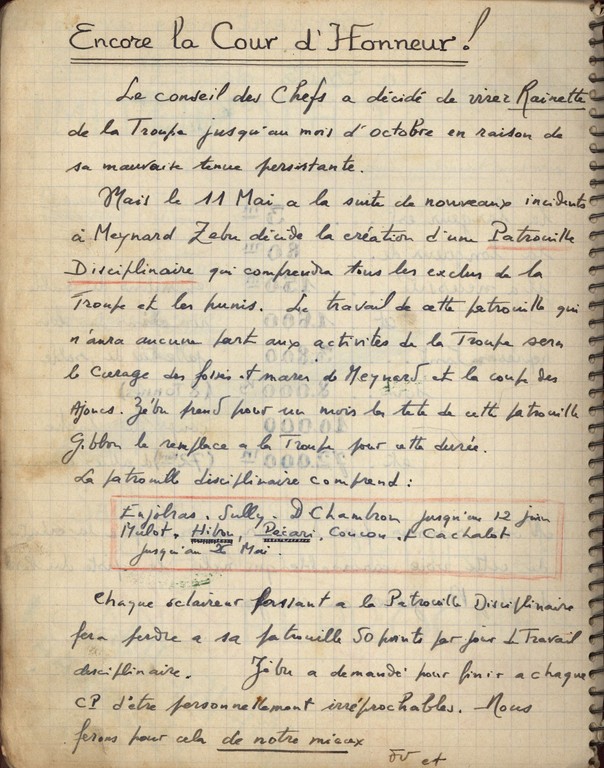 Encore la Cour d'Honneur!
Le conseil des Chefs a décidé de virer Rainette
de la Troupe jusqu'au mois d'octobre en raison de
sa mauvaise tenue persistante.
Mais le 11 Mai a la suite de nouveaux incidents
à Meynard Zebu décide la création d'une Patrouille
Disciplinaire qui comprendra tous les exclus de la
Troupe et les punis. Le travail de cette patrouille qui
n'aura aucune part aux activités de la Troupe sera
le curage des fossés et mares de Meynard et la coupe des
Ajoncs. Zébu prend pour un mois la tete de cette patrouille
Gibbon le remplace a la Troupe pour cette durée.
La patrouille disciplinaire comprend :
Enjolras. Sully. D Chambron jusqu'au 12 juin
Mulot. Hibou, Pécari, Coucou et Cachalot
jusqu'au Mai.
Chaque éclaireur passant a la Patrouille Disciplinaire
fera perdre a sa patrouille 50 points par jour de Travail
disciplinaire. Zébu a demandé pour finir a chaque
CP d'être personnellement irréprochables. Nous
ferons pour cela de notre mieux